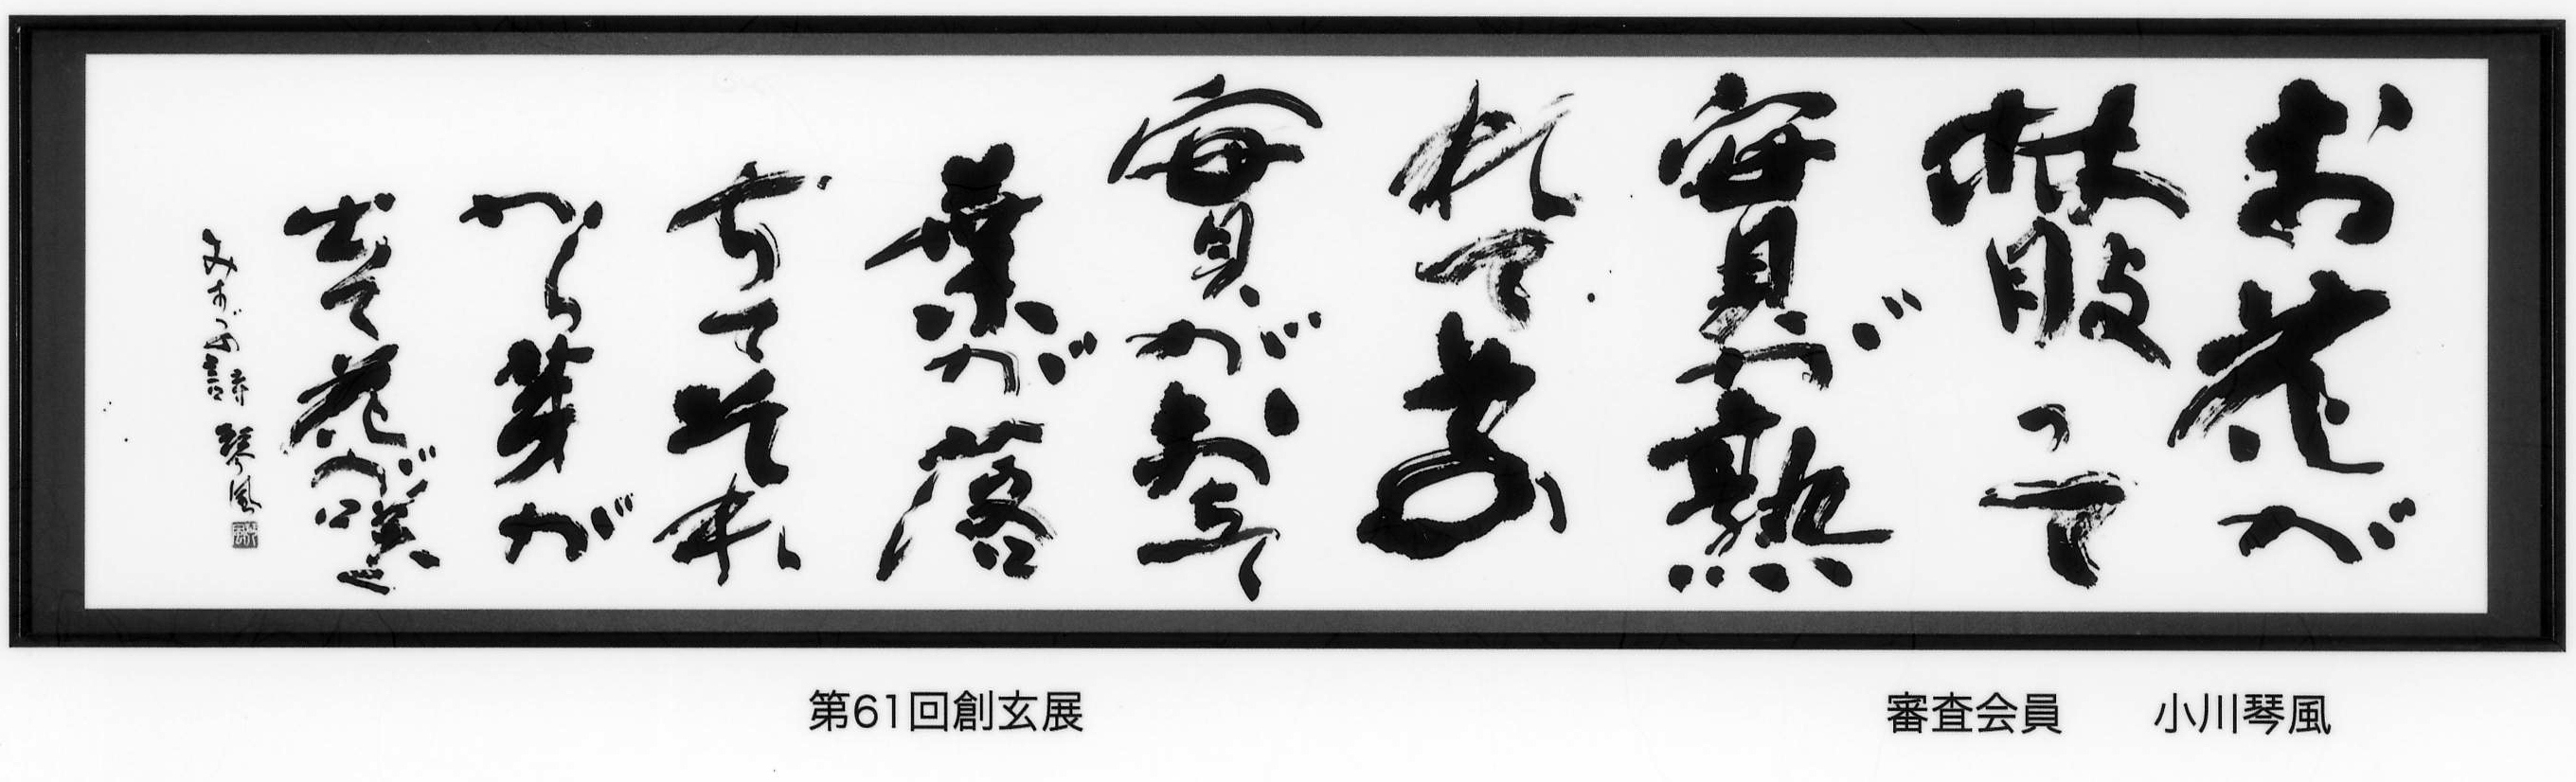 お花が
散って
實が熟
れてその
實がおちて
葉が落
ちてそれ
から芽が
出て花が咲く
みすゞの詩 琴風
第61回創玄展
審査会員 小川琴風